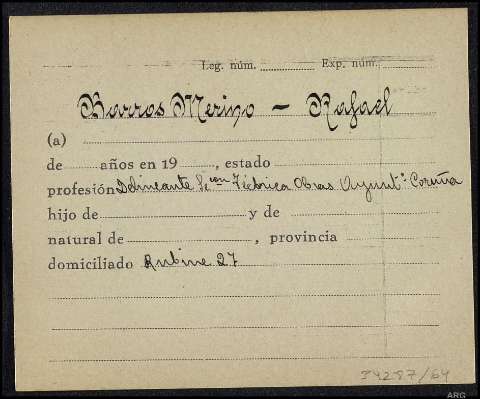 Leg. núm. Exp. núm.
Barros Merino - Rafael
(a)
de años en 19 , estado
profesión Delineante Obras Ayuntº Coruña
hijo de y de
natural de , provincia
domiciliado Rubine 27
34287/64
ARG